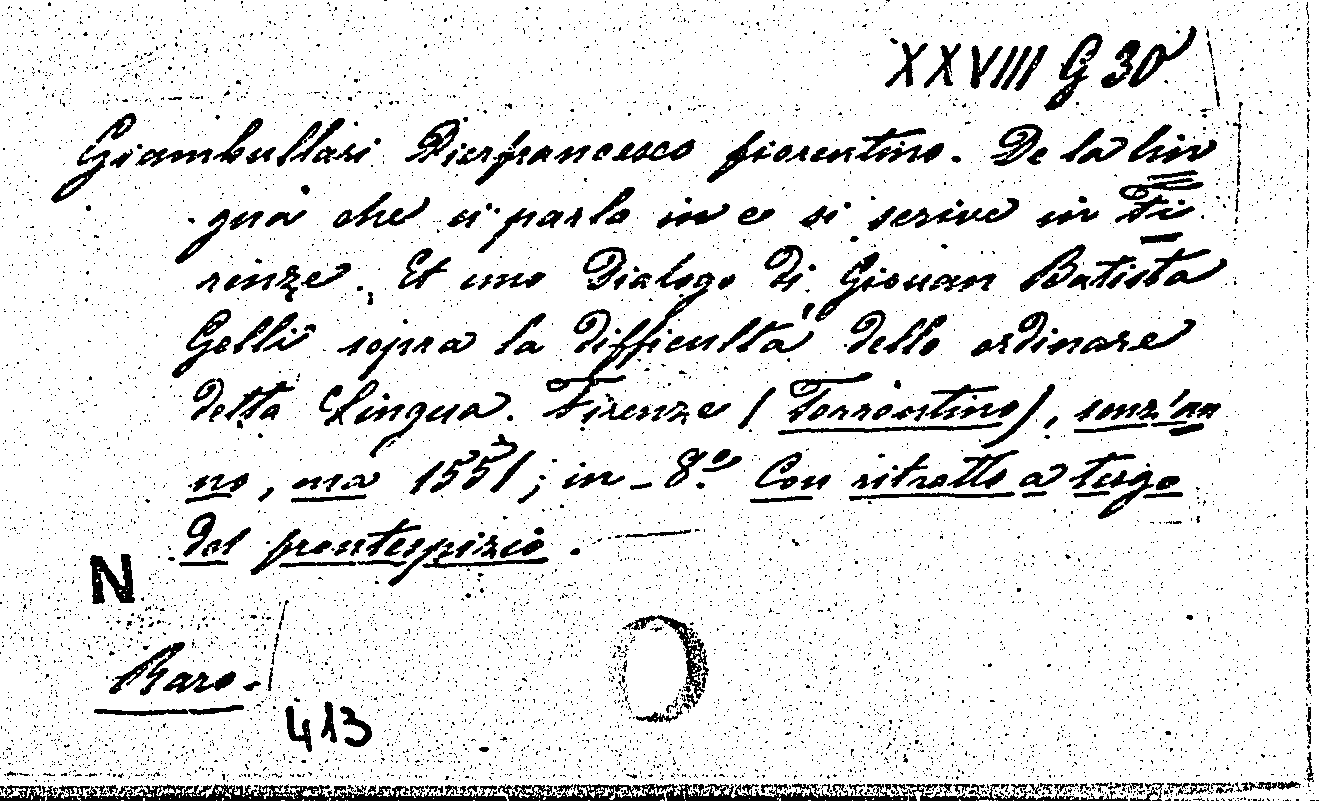 XXVIII G 30
Giambullari Pierfrancesco fiorentino. De la lin
gua che si parla in e si scrive in Fi
renze. Et uno Dialogo di Giovan Batista
Gelli sopra la difficultà dello ordinare
detta Lingua. Firenze (Torrentino), senz'an
no, ma 1551; in-8º. Con ritratto a tergo
del frontespizio.
N
Raro.
413